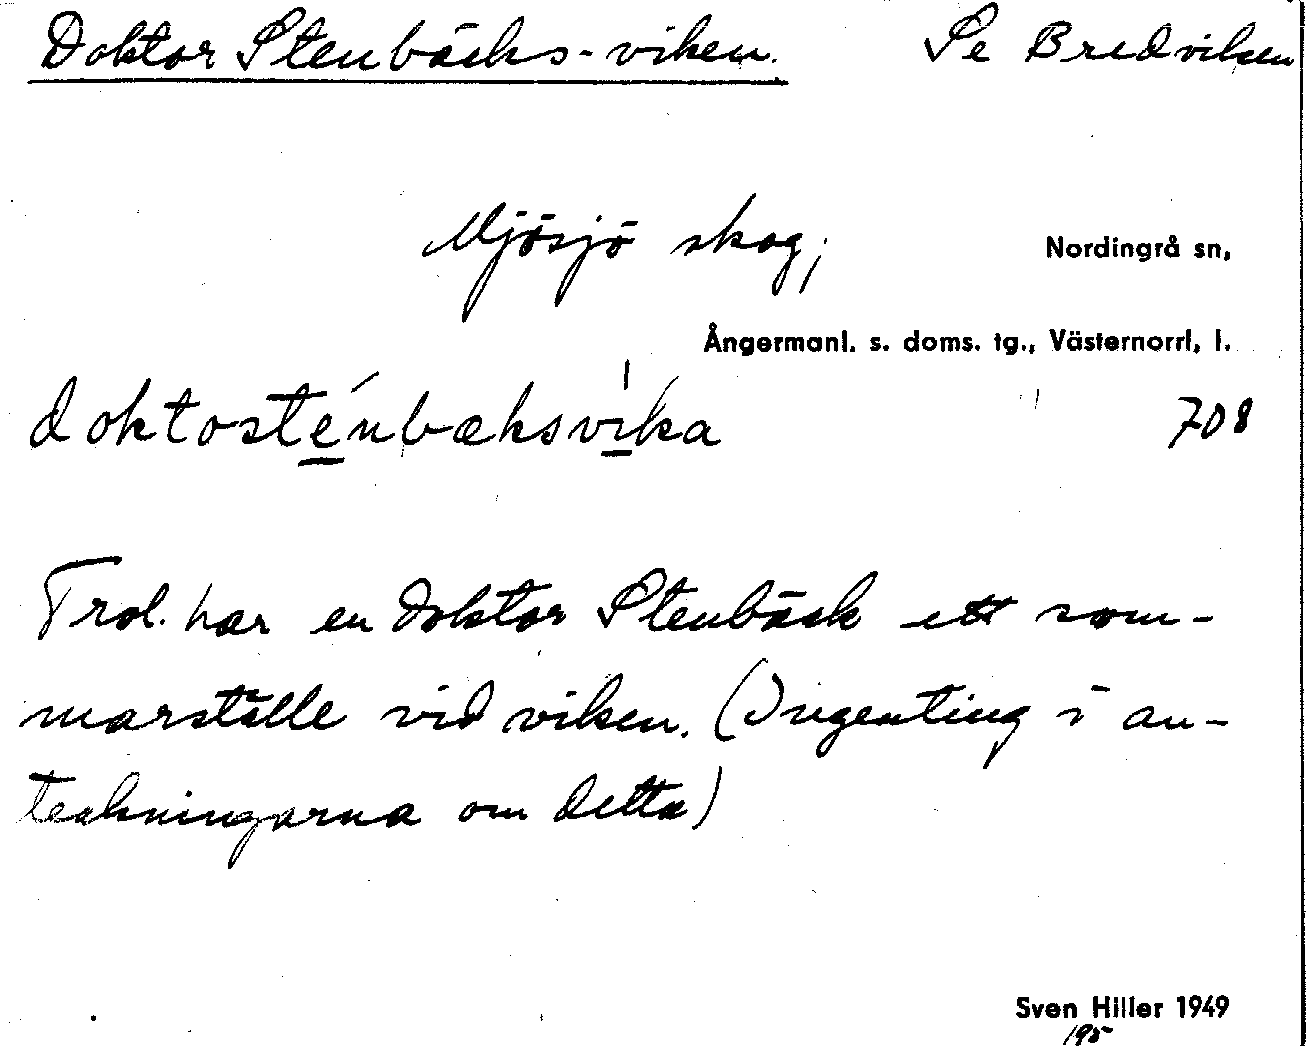 Doktor Stenbäcks-viken. Se Bredviken
Mjösjö skog; Nordingrå sn,
Ångermanl. s. doms. tg., Västernorrl, l.
doktosténbæksvika 708
Trol. har en doktor Stenbäck ett som-
marställe vid viken. (Ingenting i an-
teckningarna om detta)
Sven Hiller 1949
195